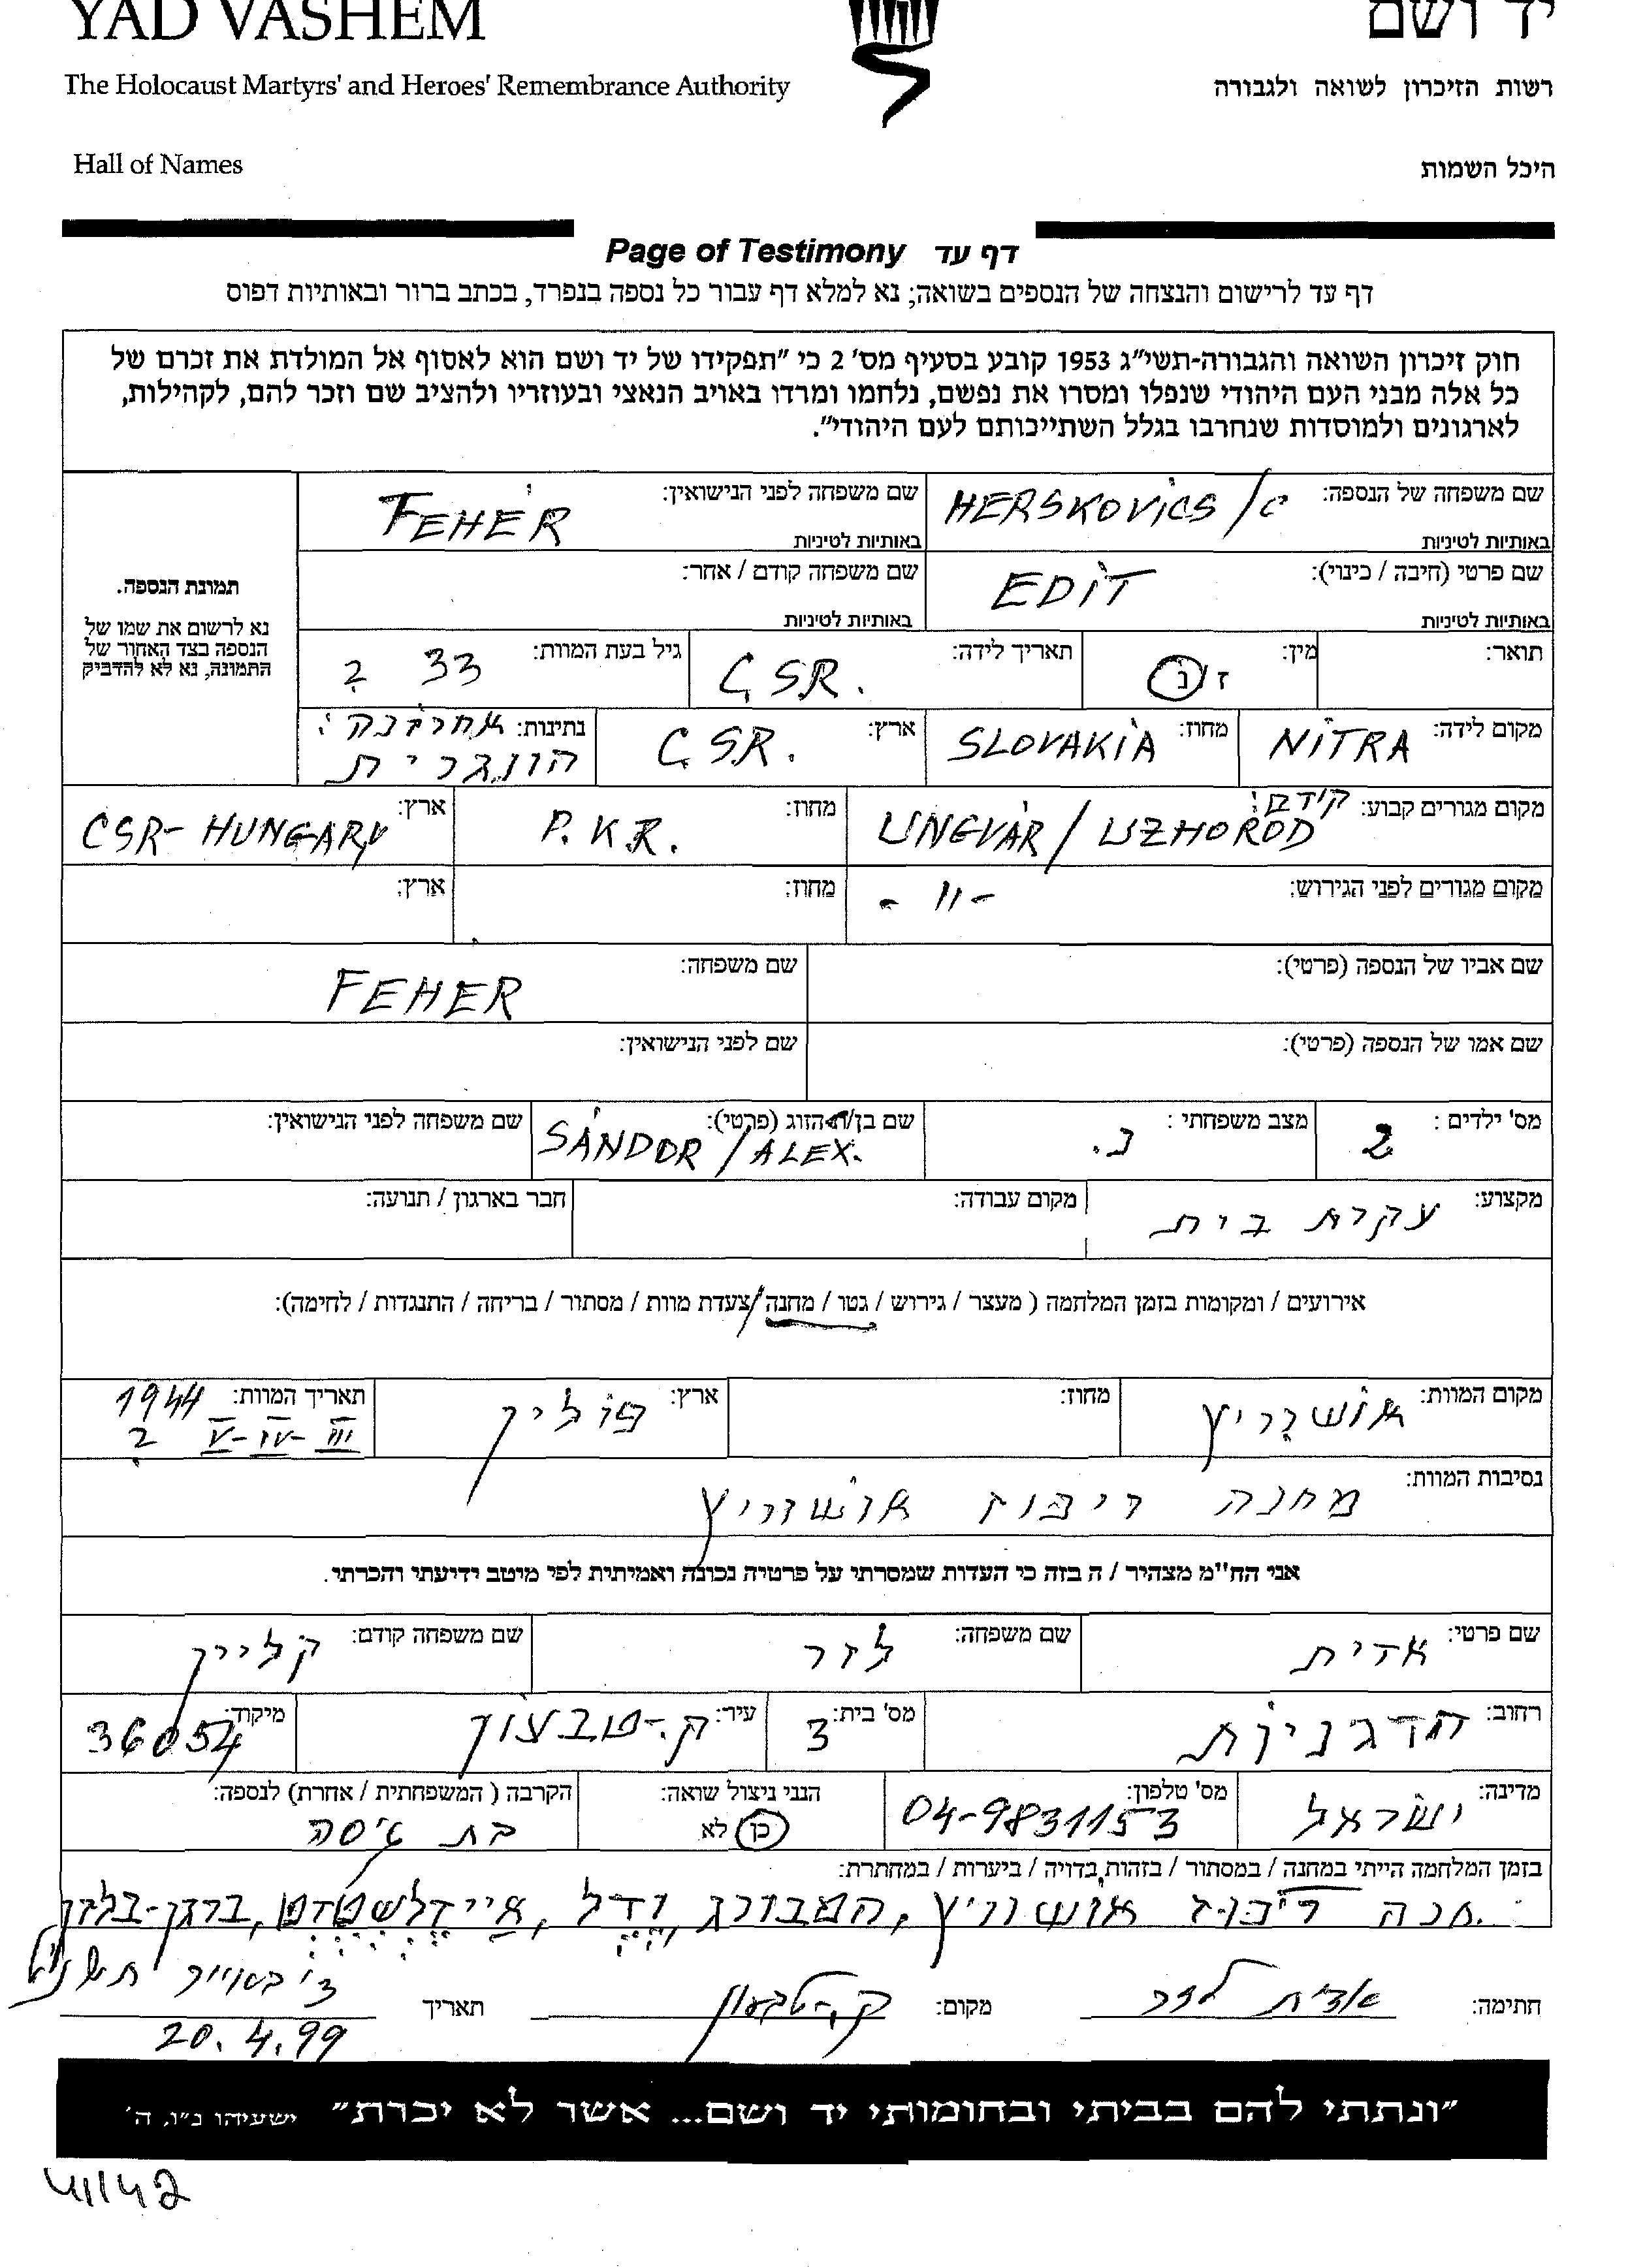 YAD VASHEM יד ושם
The Holocaust Martyrs' and Heroes' Remembrance Authority רשות הזיכרון לשואה ולגבורה
Hall of Names היכל השמות
Page of Testimony דף עד
דף עד לרישום והנצחה של הנספים בשואה; נא למלא דף עבור כל נספה בנפרד, בכתב ברור ובאותיות דפוס
חוק זיכרון השואה והגבורה-תשי״ג 1953 קובע בסעיף מס׳ 2 כי ״תפקידו של יד ושם הוא לאסוף אל המולדת את זכרם של
כל אלה מבני העם היהודי שנפלו ומסרו את נפשם, נלחמו ומרדו באויב הנאצי ובעוזריו ולהציב שם וזכר להם, לקהילות,
לארגונים ולמוסדות שנחרבו בגלל השתייכותם לעם היהודי״.
שם משפחה של הנספה: HERSKOVICS /C שם משפחה לפני הנישואין: FEHER
באותיות לטיניות באותיות לטיניות
שם פרטי (חיבה / כינוי): EDIT שם משפחה קודם / אחר:
באותיות לטיניות באותיות לטיניות
תמונת הנספה.
נא לרשום את שמו של
הנספה בצד האחור של
התמונה, נא לא להדביק
תואר: מין: ז נ תאריך לידה: Č.S.R. גיל בעת המוות: 33 ?
מקום לידה: NITRA מחוז: SLOVAKIA ארץ: Č.S.R. נתינות: אחרונה:
הונגרית
מקום מגורים קבוע: קודם: UNGVÁR / UZHOROD מחוז: P.K.R. ארץ: CSR-HUNGARY
מקום מגורים לפני הגירוש: -"- מחוז: ארץ:
שם אביו של הנספה (פרטי): שם משפחה: FEHER
שם אמו של הנספה (פרטי): שם לפני הנישואין:
מס׳ ילדים : 2 מצב משפחתי : נ. שם בן/ת הזוג (פרטי): SÁNDOR / ALEX. שם משפחה לפני הנישואין:
מקצוע: עקרת בית מקום עבודה: חבר בארגון / תנועה:
אירועים / ומקומות בזמן המלחמה ( מעצר / גירוש / גטו / מחנה / צעדת מוות / מסתור / בריחה / התנגדות / לחימה):
מקום המוות: אושוויץ מחוז: ארץ: פולין תאריך המוות: 1944
III-IV-V ?
נסיבות המוות: מחנה ריכוז אושוויץ
אני הח״מ מצהיר / ה בזה כי העדות שמסרתי על פרטיה נכונה ואמיתית לפי מיטב ידיעתי והכרתי.
שם פרטי: אדית שם משפחה: לזר שם משפחה קודם: קליין
רחוב: חרגניות מס׳ בית: 3 עיר: ק.-טבעון מיקוד: 36054
מדינה: ישראל מס׳ טלפון: 04-9831153 הנני ניצול שואה: כן לא הקרבה ( המשפחתית / אחרת) לנספה: בת גיסה
בזמן המלחמה הייתי במחנה / במסתור / בזהות בדויה / ביערות / במחתרת:
מחנה ריכוז אושוויץ, המבורג, ודל, איידלשטדט, ברגן-בלזן
חתימה: אדית לזר מקום: ק.-טבעון תאריך ד' באייר תשנ"ט
20.4.99
״ונתתי להם בביתי ובחומותי יד ושם... אשר לא יכרת״ ישעיהו נ״ו, ה׳
41142